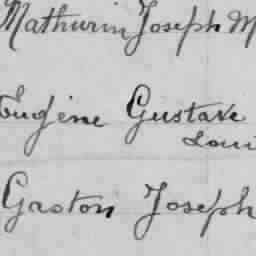 Mathurin Joseph M
Eugène Gustave
Loui
Gaston Joseph